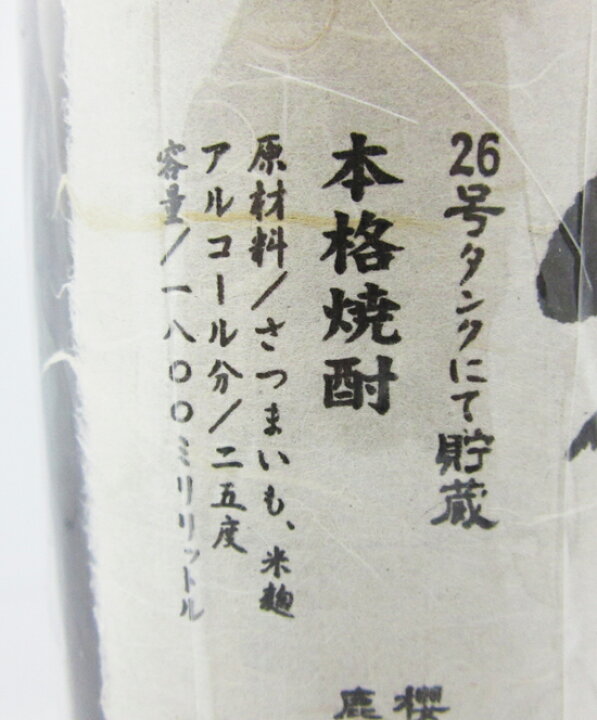 26号タンクにて貯蔵
本格焼酎
原材料/さつまいも、米麹
アルコール分/二五度
容量/一八〇〇ミリリットル
櫻
鹿